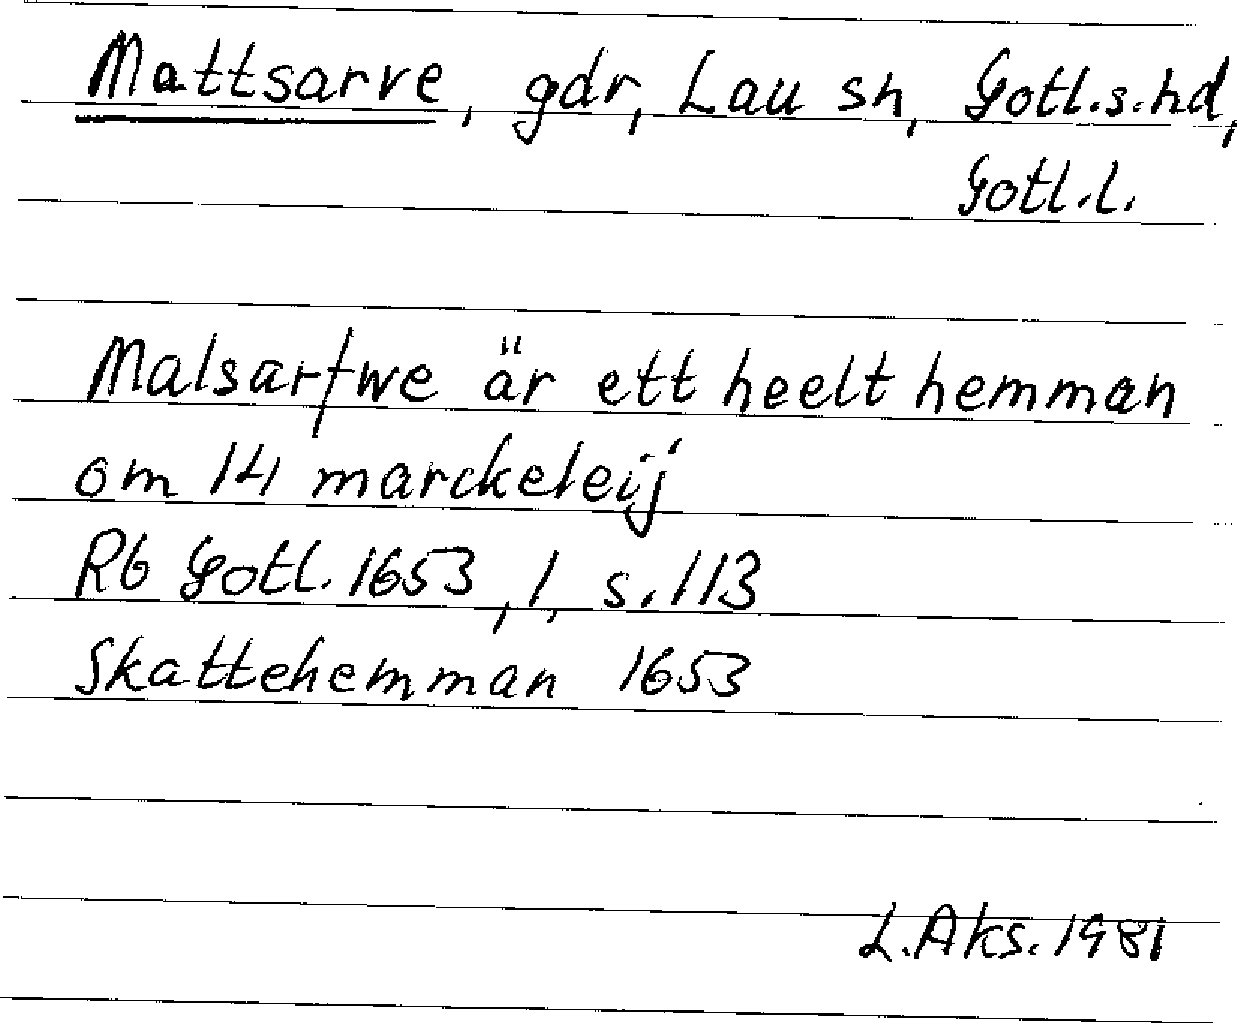 Mattsarve, gdr, Lau sn, Gotl.s.hd,
Gotl.l.
Malsarfwe är ett heelt hemman
om 14 marckeleij
Rb Gotl. 1653, 1, s. 113
Skattehemman 1653
L.Aks. 1981